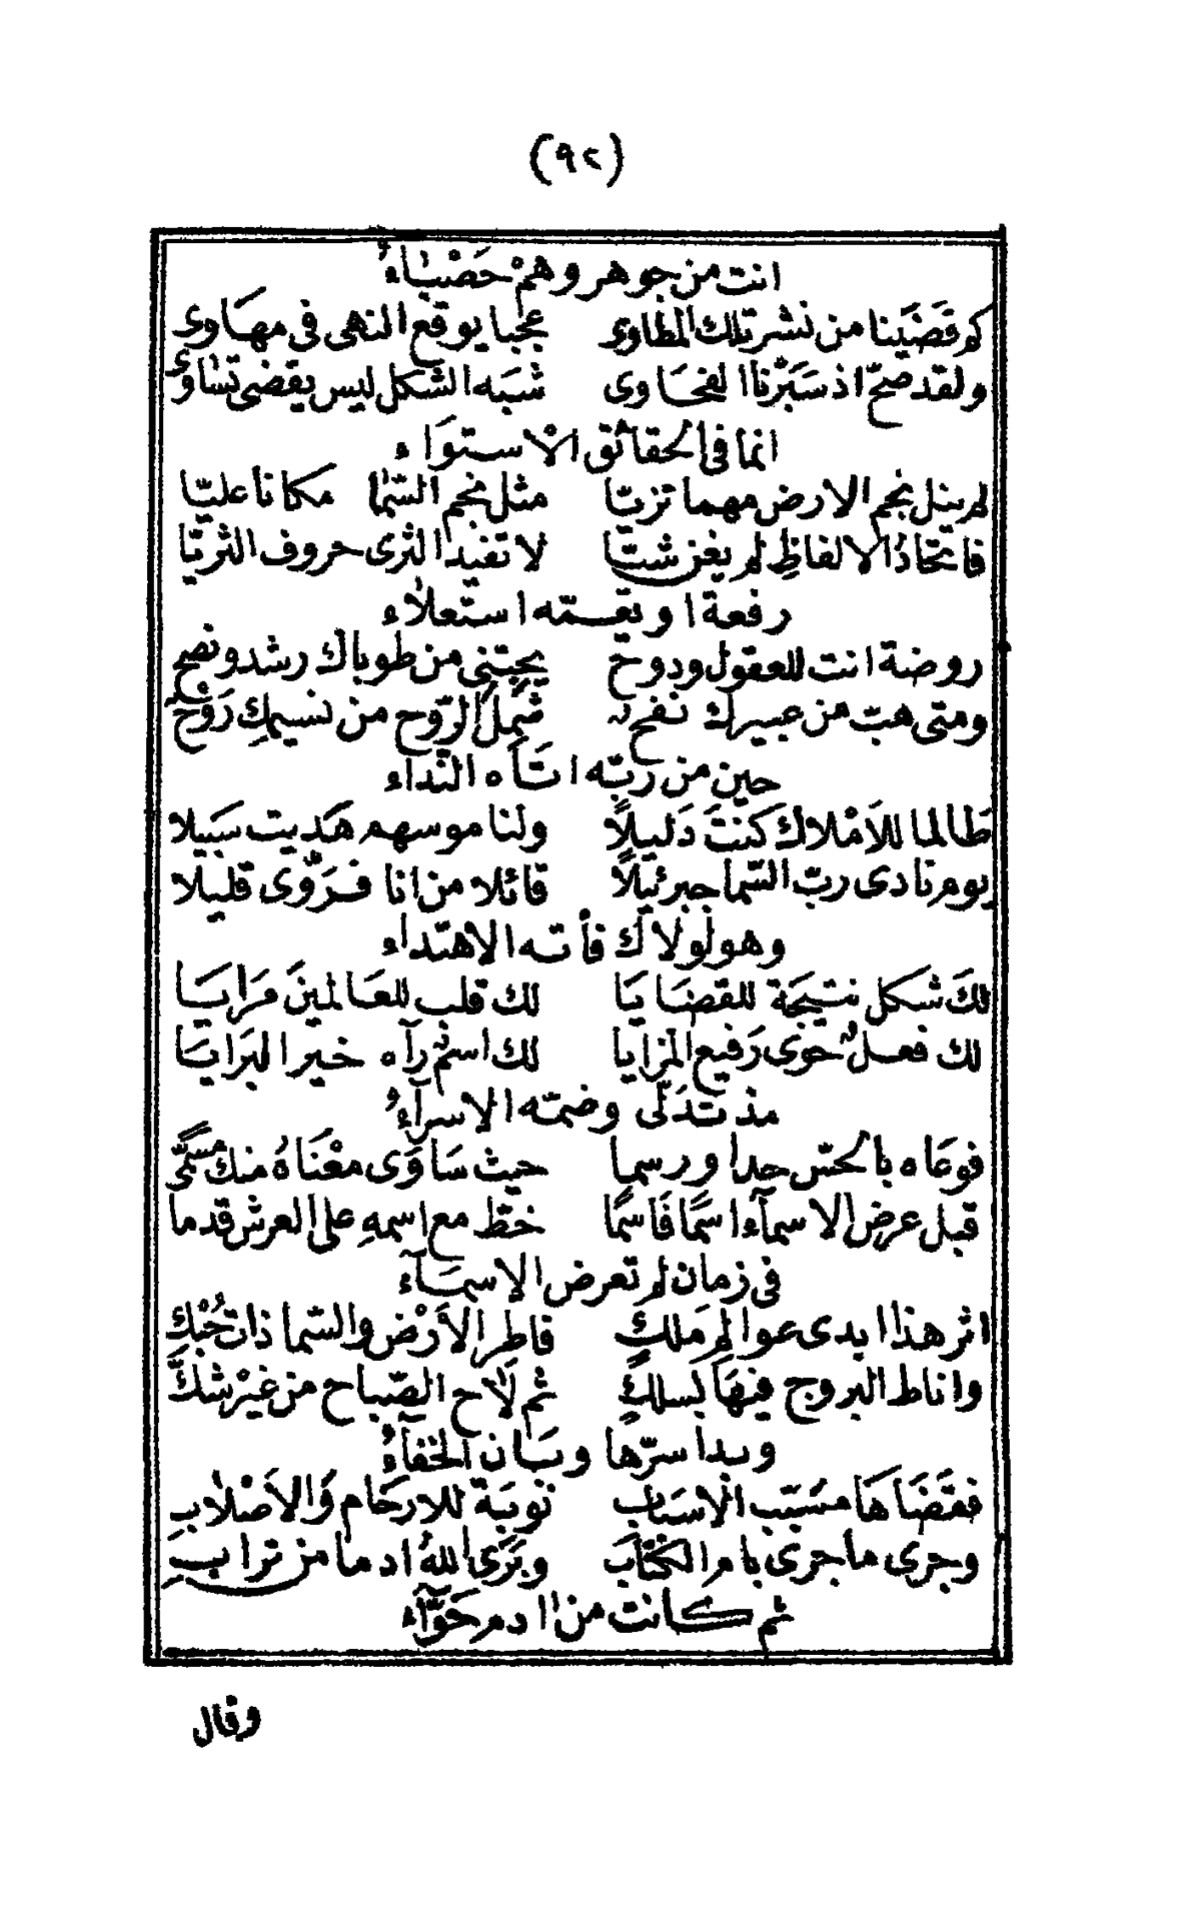 (٩٢)
انت من جوهر وهم حَصْباءُ
كم قَضَينا من نشر تلك المطاوى عجبا يوقع النهى فى مهاوى
ولقد صحّ اذ سَبَرْنا الفحَاوى شبَه الشكل ليس يقضى تساوى
انما فى الحقائق الاستوَاء
لم ينل نجم الارض مهما تزيّا مثل نجم السّما مكانا عليّا
فاتحّادُ الالفاظِ لم يغن شيّا لا تفيد الثرى حروف الثريّا
رفعة او يقسمّه استعلاء
روضة انت للعقول ودوح يجتنى من طوباك رشد ونصح
ومتى هبّ من عبيرك نفح شمِلَ الرّوح من نسيمكِ رَوْح
حين من ربّه اتَاه النّداء
طَالما للاَمْلاك كنتَ دَليلاً ولناموسهم هَديت سَبيلا
يوم نادى ربّ السّما جبرئيلاً قائلا من انا فرَوّى قليلا
وهو لولاك فأته الاهتداء
لكَ شكل نتيجَة للقضَايَا لك قلب للعَالمينَ مَرايَا
لك فعل حوَى رَفيع المزايا لك اسم رآه خير البَرايَا
مذ تَدَلّى وضمته الاسرآءُ
فوعَاه بالحسّ حدا ورسما حيث سَاوَى معْنَاهُ منك مسَمَّى
قبل عرض الاسمآء اسمًا فَاسمًا خطّ مع اسمهِ على العرش قدما
فى زمان لم تعرض الاسمَآء
اثر هذا ابدى عوالم مَلكِ فاطر الاَرْض والسّما ذات حُبْكِ
واناط البروج فيهَا لسلكٍ ثم لاَح الصّباح من غيْر شكّ
وبدا سرّها وبَان الخفآءُ
فقضَاهَا مسَبّب الاسبَاب نوبَة للارحَام وَالاَصْلاَبِ
وجرى مأجرى بام الكتَابَ وبَرَى اللهُ ادما من ترابِ
ثم كانت من ادم حَوّآء
وقال